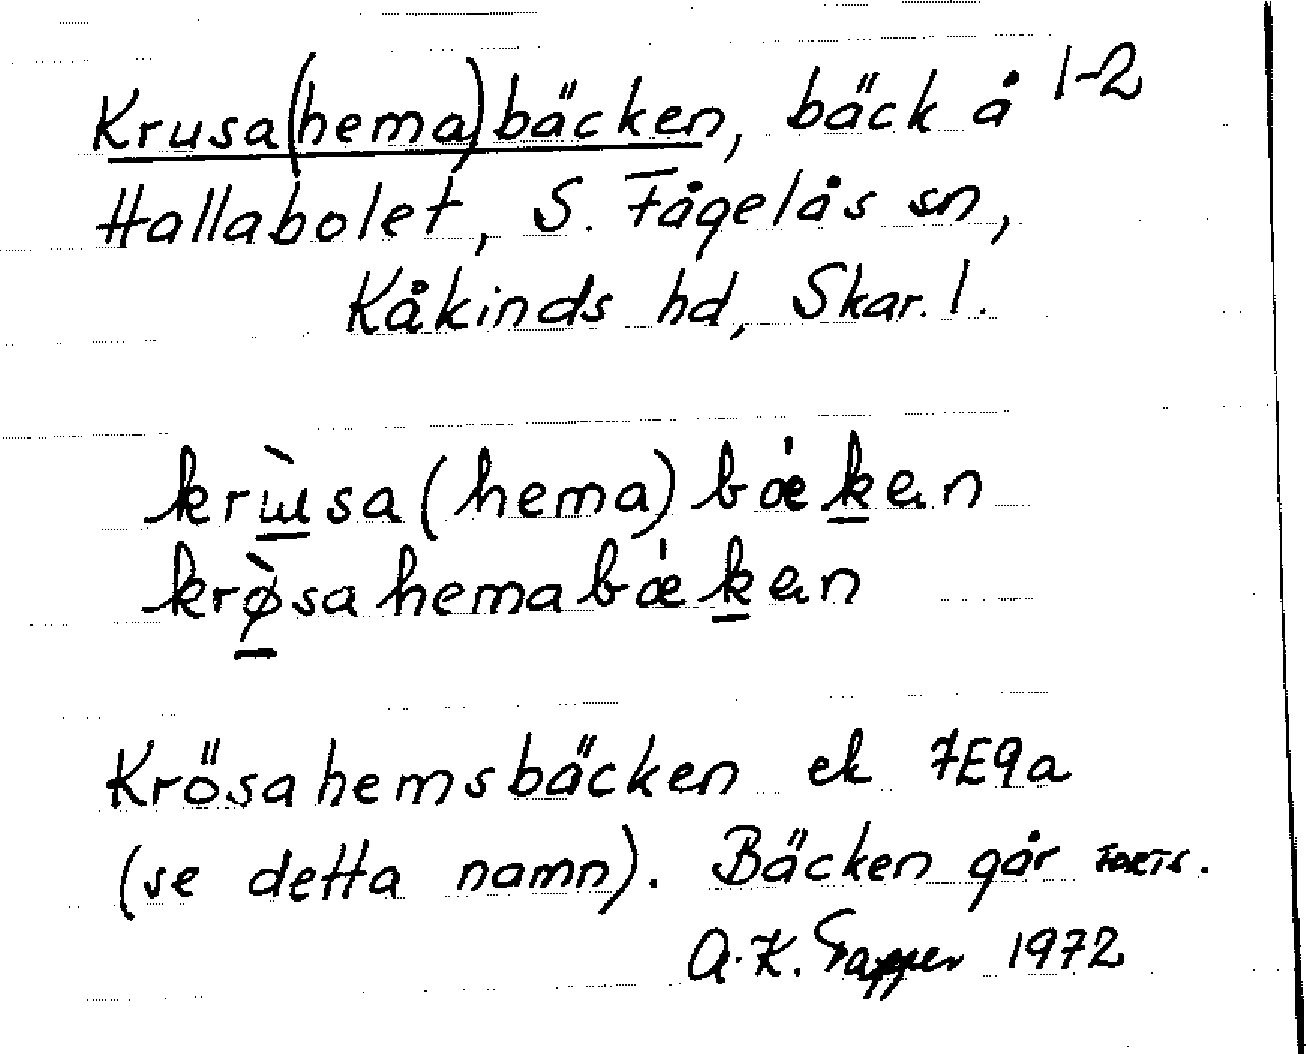 Krusa(hema)bäcken, bäck å 1-2
Hallabolet, S. Fågelås sn,
Kåkinds hd, Skar. l.
krɯ̀sa(hema)bǽken
krø̀sahemabǽken
Krösahemsbäcken ek 7E9a
(se detta namn). Bäcken går FORTS.
A.K. Tapper 1972